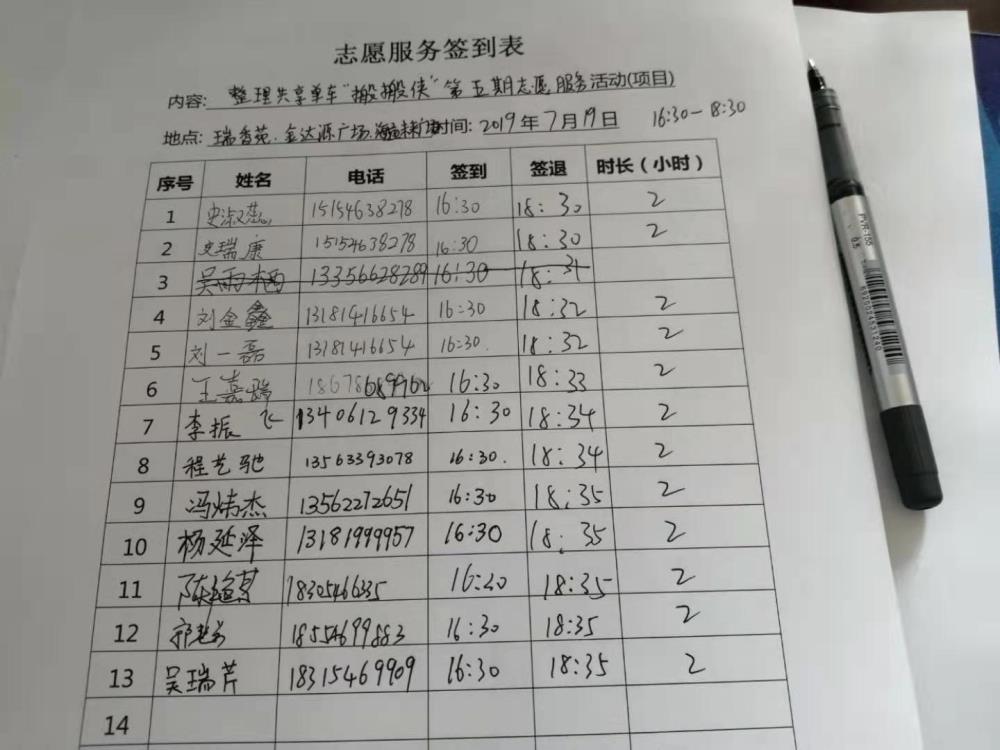 志愿服务签到表
内容: 整理共享单车"搬搬侠"第五期志愿服务活动(项目)
地点: 瑞香苑.金达源广场. 时间: 2019年7月19日 16:30-18:30
序号 姓名 电话 签到 签退 时长(小时)
1 史淑蕊 15154638278 16:30 18:30 2
2 史瑞康 15154638278 16:30 18:30 2
3 吴雨栖 13356628289 16:30 18:31
4 刘金鑫 13181416654 16:30 18:32 2
5 刘一磊 13181416654 16:30. 18:32 2
6 王嘉 18678689962 16:30 18:33 2
7 李振飞 13406129334 16:30 18:34 2
8 程艺驰 13563393078 16:30. 18:34 2
9 冯炜杰 13562272651 16:30 18:35 2
10 杨延泽 13181999957 16:30 18:35 2
11 陈 18305466335 16:20 18:35 2
12 郭 18554699883 16:30 18:35 2
13 吴瑞芹 18315469909 16:30 18:35 2
14
PVR-155
0.5
6920024531240